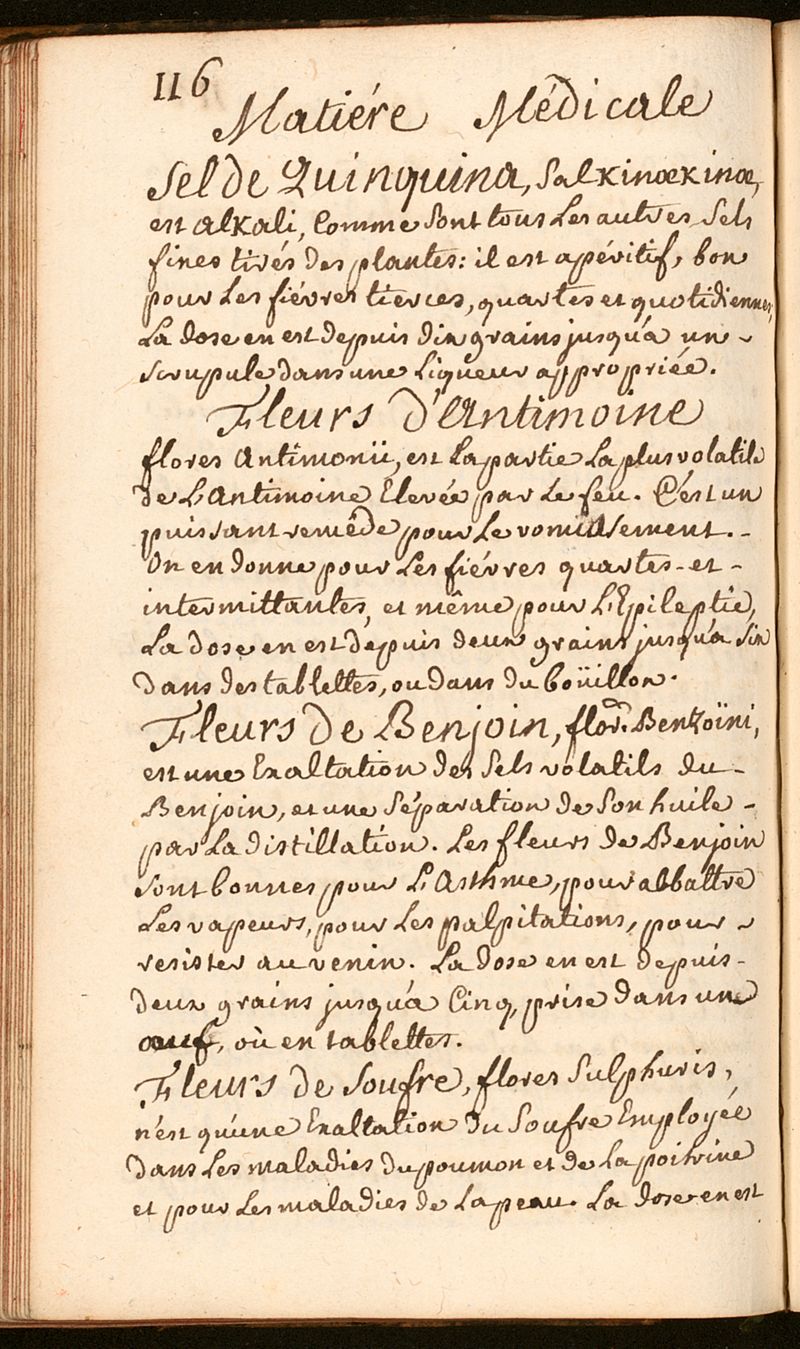 116
Matiére Médicale
Sel de Quinquina, Sal Kinœkinœ,
est alkali, Comme sont tous Les autres Sels
fines tirés des plantes: il est apéritif, bon
pour Les fiévres tierces, quartes et quotidiennes,
La dose en est depuis dix grains jusqu'a un -
scrupule dans une Liqueur appropriée.
Fleurs d'Antimoine
flores Antimonii, est La partie La plus volatile
de L'Antimoine Elevée par Le feu. C'est un
puissant reméde pour Le vomissement. -
On en donne pour Les fiévres quartes - et -
intermittantes, et même pour L'Epileptie,
La dose en est depuis deux grains jusqu'a six
dans des tablettes, ou dans du boüillon.
Fleurs de Benjoin, flor. Benzoïni,
est une Exaltation des Sels volatils du -
Benjoin, et une Séparation de Son huile -
par La distillation. Les fleurs de Benjoin
sont bonnes pour L'Asthme, pour abbattre
Les vapeurs, pour Les palpitations, pour -
resister au venin. La dose en est depuis -
deux grains jusqu'a Cinq, prise dans une
œuf, où en tablettes.
Fleurs de Soufre, flores Sulphuris,
n'est qu'une Exaltation du Soufre Employée
dans Les maladies du poumon et de La poitrine
et pour Les maladies de La peau. La dose en est